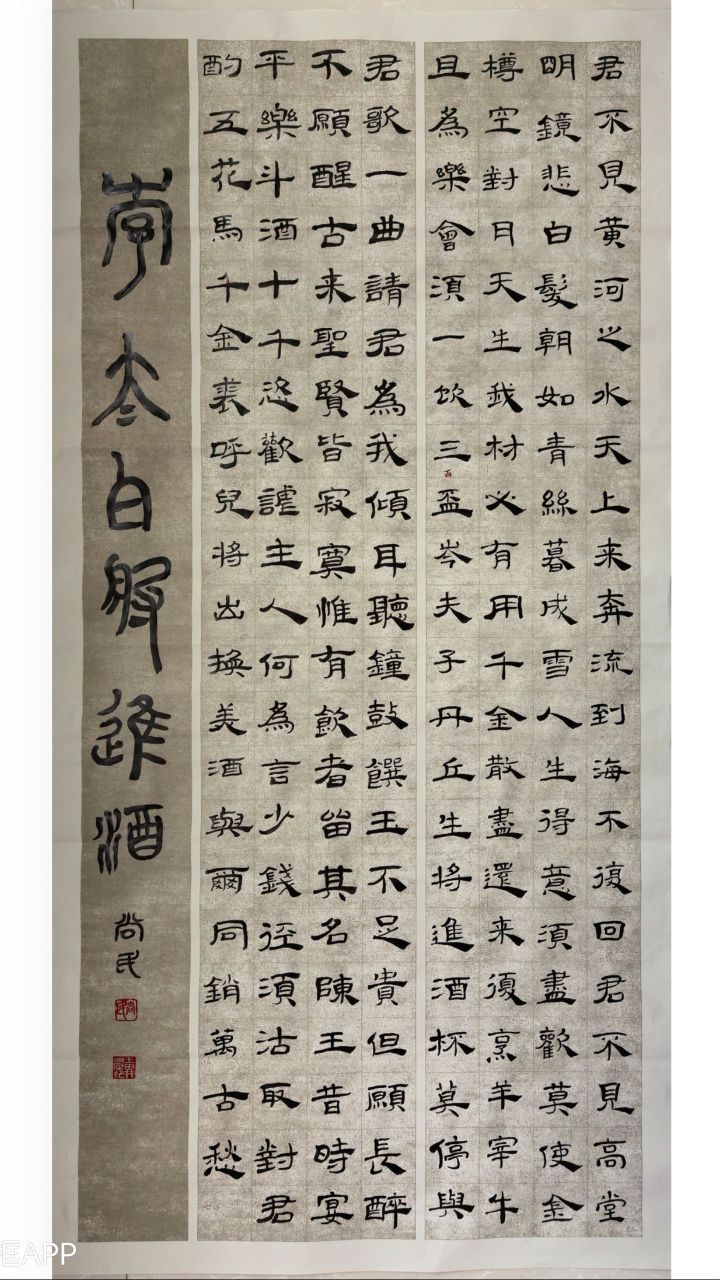 君不見黄河之水天上来奔流到海不復回君不見高堂
明鏡悲白髮朝如青絲暮成雪人生得意須盡歡莫使金
樽空對月天生我材必有用千金散盡還来復烹羊宰牛
且為樂會須一飲三百盃岑夫子丹丘生将進酒杯莫停與
君歌一曲請君為我傾耳聽鐘鼓饌玉不足貴但願長醉
不願醒古来聖賢皆寂寞惟有飲者留其名陳王昔時宴
平樂斗酒十千恣歡謔主人何為言少錢径須沽取對君
酌五花馬千金裘呼兒将出換美酒與爾同銷萬古愁
李太白将進酒
尚民
尚民
APP